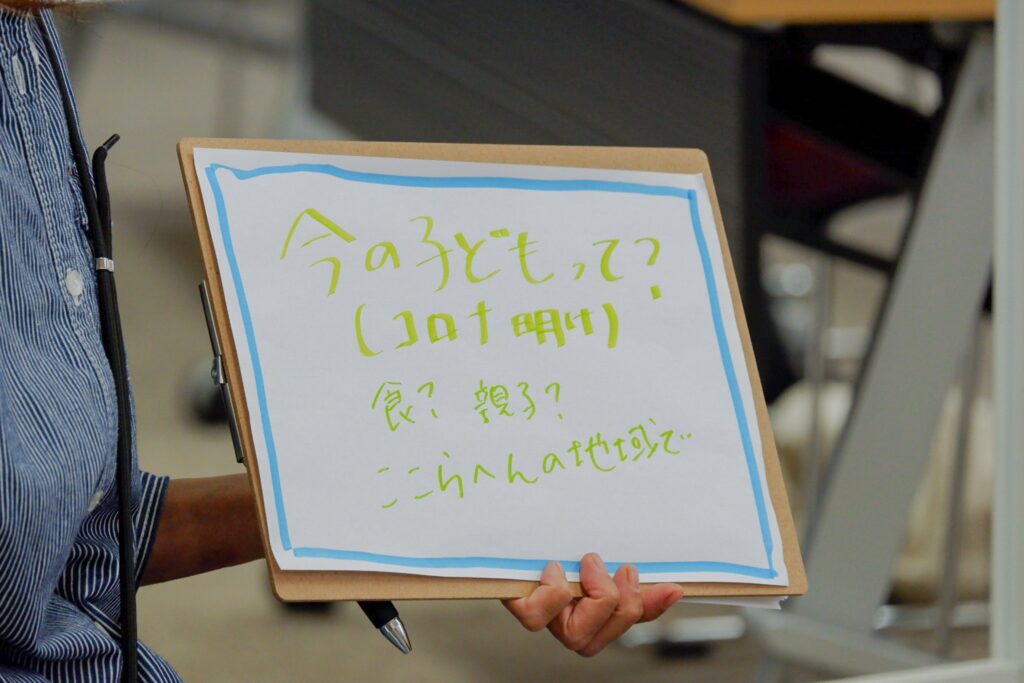 今の子どもって?
(コロナ明け)
食? 親子?
ここらへんの地域で